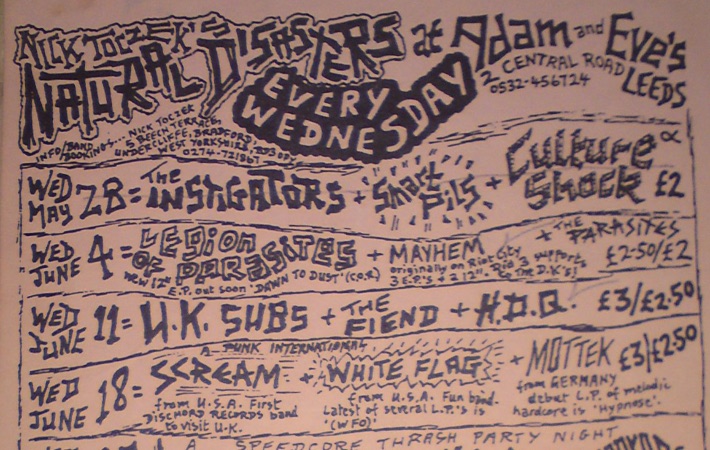 NICK TOCZEK'S
NATURAL DISASTERS at Adam and Eve's
2 CENTRAL ROAD
0532-456724
LEEDS
EVERY
WEDNESDAY
INFO/BAND
BOOKINGS:... NICK TOCZEK
5 BEECH TERRACE,
UNDERCLIFFE, BRADFORD,
WEST YORKSHIRE, BD3 0PY
0274-721867
WED
MAY 28 = THE INSTIGATORS + Shart Pils + Culture Shock £2
WED
JUNE 4 = LEGION OF PARASITES + MAYHEM + THE PARASITES
new 12"
E.P. out soon 'DAWN TO DUST' (C.O.R)
originally on Riot City
3 E.P.'s + 2 12".
support
to The D.K's!
£2.50/£2
WED
JUNE 11 = U.K. SUBS + THE FIEND + H.D.Q. £3/£2.50
A PUNK INTERNATIONAL
WED
JUNE 18 = SCREAM + WHITE FLAG + MOTTEK £3/£2.50
from U.S.A. First
DISCHORD RECORDS band
to visit U.K.
from U.S.A. Fun band.
Latest of several L.P.'s is
'(WFO)'
from GERMANY
debut L.P. of melodic
hardcore is 'Hypnose'.
A SPEEDCORE THRASH PARTY NIGHT